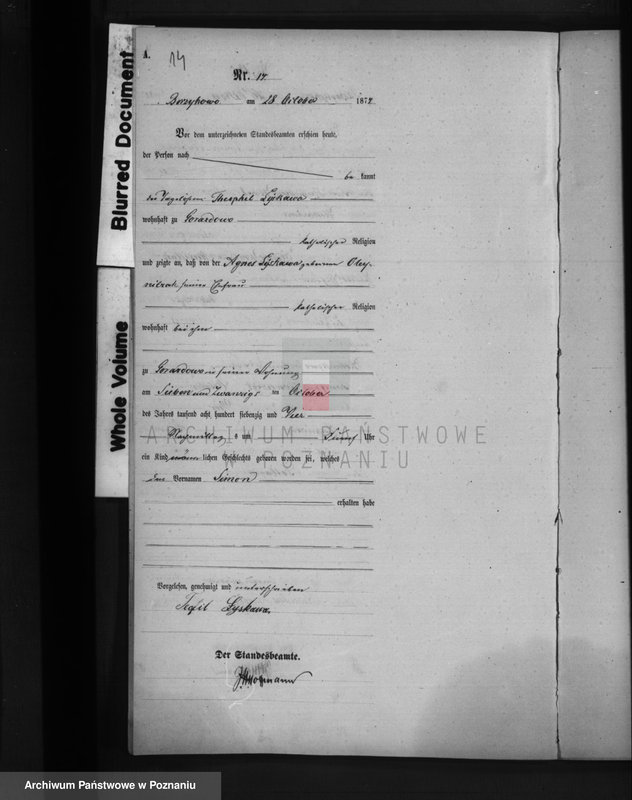 Blurred Document
Whole Volume
A. 14
Nr. 14
Borzykowo am 28 October 1874
Vor dem unterzeichneten Standesbeamten erschien heute,
der Person nach
be kannt
der Theophil Lyskawa
wohnhaft zu Gorazdowo
katholischer Religion
und zeigte an, daß von der Agnes Lyskawa geborenen
seiner Ehefrau
katholischer Religion
wohnhaft bei ihm
zu Gorazdowo in seiner Wohnung
am Sieben und Zwanzigsten October
des Jahres tausend acht hundert siebenzig und Vier
Nachmittag s um Fünf Uhr
ein Kind männ lichen Geschlechts geboren worden sei, welches
den Vornamen Simon
erhalten habe
Vorgelesen, genehmigt und unterschrieben
Lyskawa.
Der Standesbeamte.
ARCHIWUM PAŃSTWOWE
W POZNANIU
Archiwum Państwowe w Poznaniu